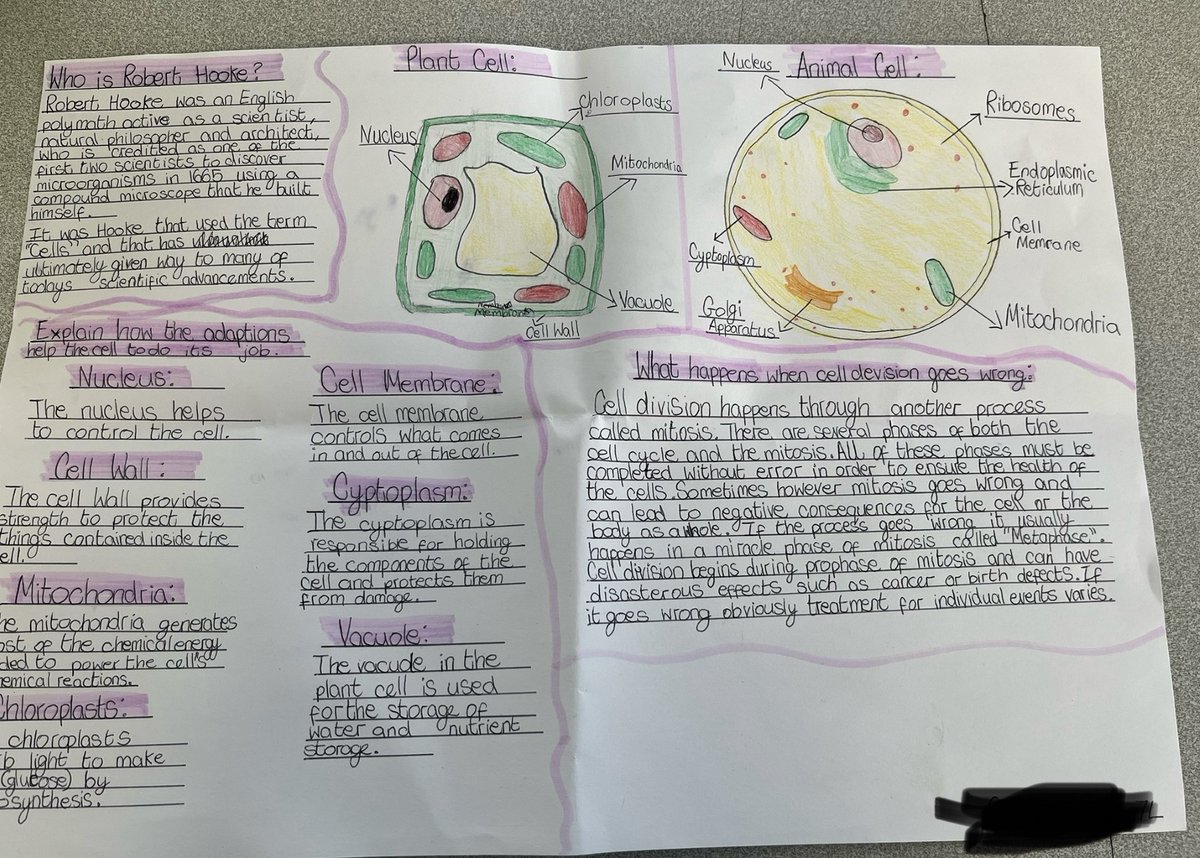 Who is Robert Hooke?
Robert Hooke was an English
polymath active as a scientist,
natural philosopher and architect,
who is credited as one of the
first two scientists to discover
microorganisms in 1665 using a
compound microscope that he built
himself.
It was Hooke that used the term
"Cells" and that has
ultimately given way to many of
todays scientific advancements.
Plant Cell:
Chloroplasts
Nucleus
Mitochondria
Vacuole
Membrane
Cell Wall
Nucleus
Animal Cell:
Ribosomes
Endoplasmic
Reticulum
Cell
Memrane
Cyptoplasm
Golgi
Apparatus
Mitochondria
Explain how the adaptions
help the cell to do its job.
Nucleus:
The nucleus helps
to control the cell.
Cell Wall:
The cell Wall provides
strength to protect the
things contained inside the
ell.
Mitochondria:
he mitochondria generates
ost of the chemical energy
ded to power the cell's
emical reactions.
Chloroplasts:
chloroplasts
b light to make
(glucose) by
osynthesis.
Cell Membrane:
The cell membrane
controls what comes
in and out of the cell.
Cyptoplasm:
The cyptoplasm is
responsible for holding
the components of the
cell and protects them
from damage.
Vacuole:
The vacuole in the
plant cell is used
for the storage of
water and nutrient
storage.
What happens when cell devision goes wrong:
Cell division happens through another process
called mitosis. There are several phases of both the
cell cycle and the mitosis. All of these phases must be
completed without error in order to ensure the health of
the cells. Sometimes however mitosis goes wrong and
can lead to negative consequences for the cell or the
body as a whole. If the process goes wrong it usually
happens in a miracle phase of mitosis called "Metaphase".
Cell division begins during prophase of mitosis and can have
disasterous effects such as cancer or birth defects. If
it goes wrong obviously treatment for individual events varies.